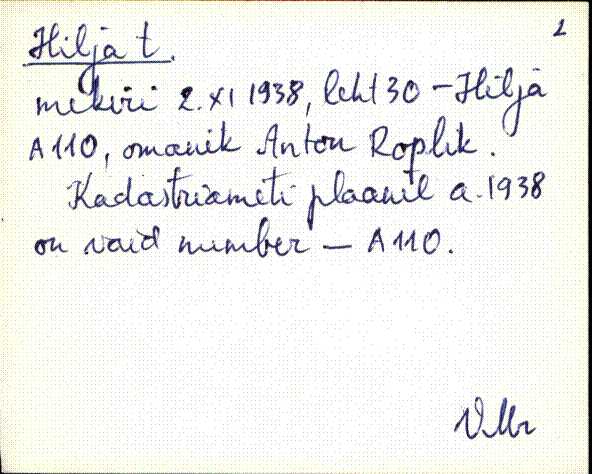 2
Hilja t.
mekiri 2. XI 1938, leht 30 – Hilja
A 110, omanik Anton Roplik.
Kadastriameti plaanil a. 1938
on vaid number – A 110.
VMr